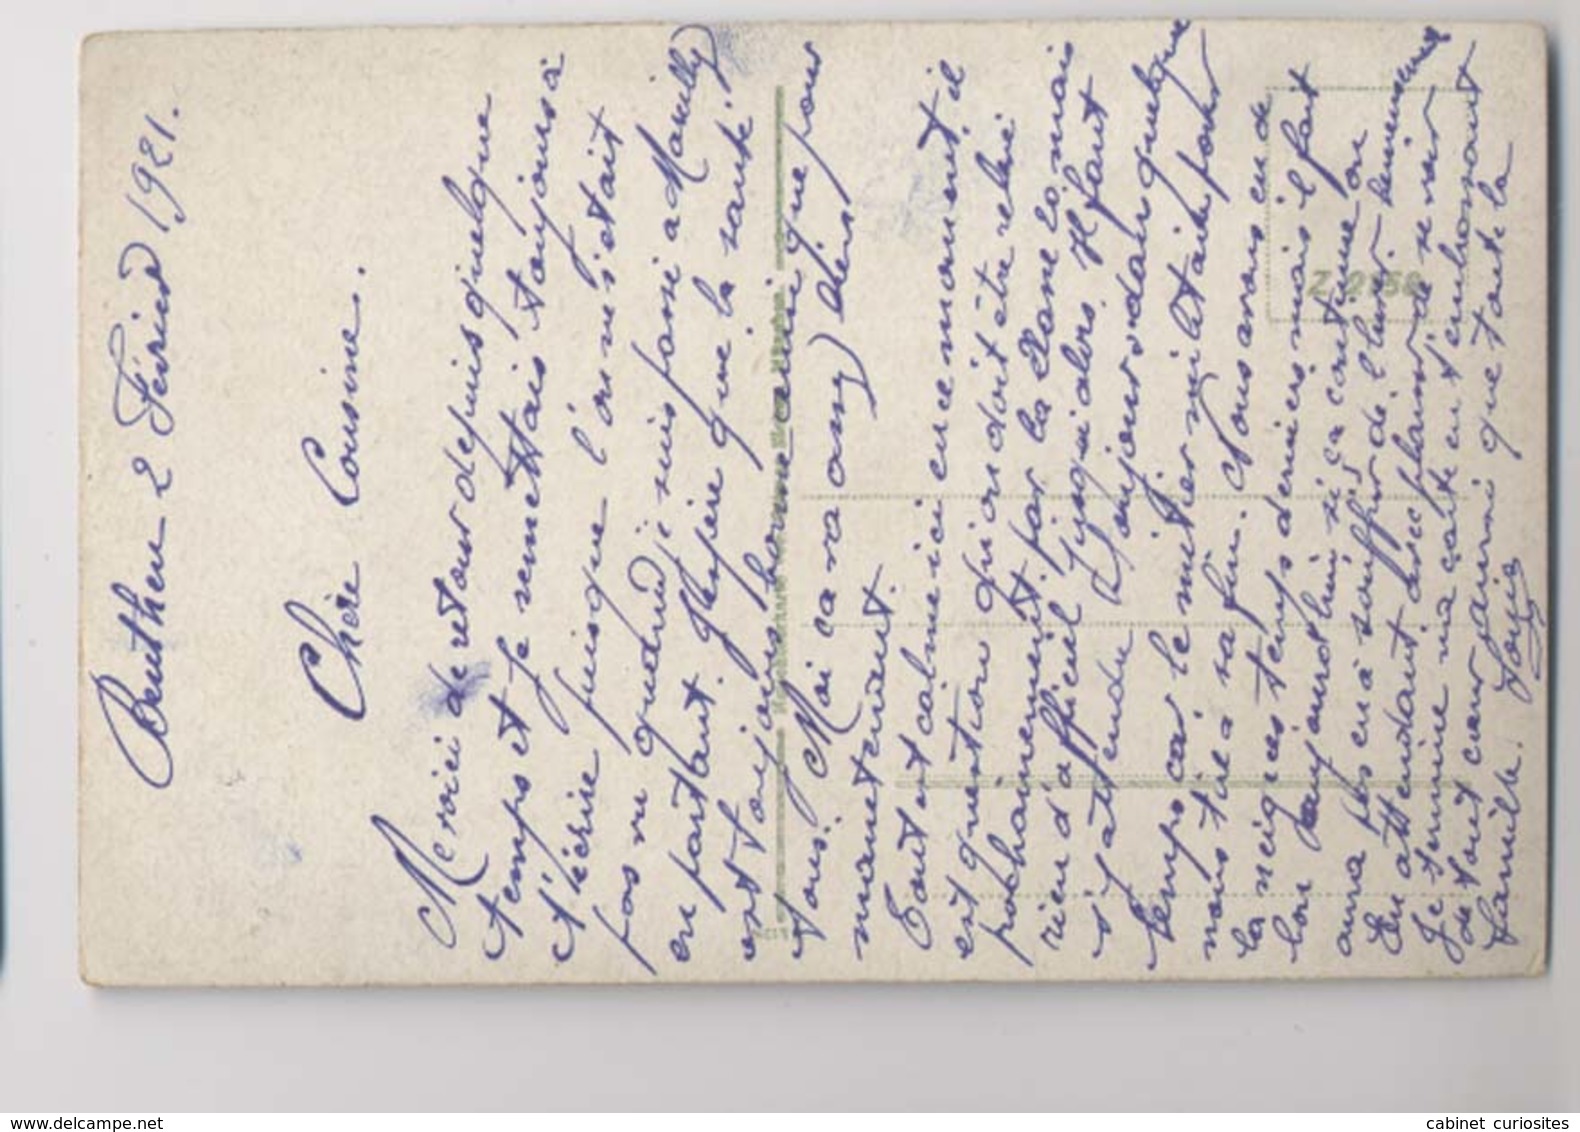 Beuthen 2 Février 1921.
Chère Cousine.
Me voici de retour depuis quelque
temps et je remettais toujours à
t'écrire puisque l'on s'était
pas vu quand je suis passé a Mailly
en partant. J'espère que la santé
est toujours bonne ainsi que pour
vous. Moi ca va assez bien
maintenant.
Tout est calme ici en ce moment il
est question qu'on doit être relevé
prochainement par la Classe 20 mais
rien d'officiel jusqu'alors. Il faut
s'attendre toujours dans quelque
temps car le métier militaire pour
nous tire a sa fin. Nous avons eu de
la neige ces temps derniers mais il fait
bon aujourd'hui si ça continue on
aura pas eu à souffrir de l'hiver
En attendant avec plaisir de se voir
Je termine ma carte en t'embrassant
de tout cœur ainsi que toute la
famille. Louis
Z 2158
www.delcampe.net
cabinet curiosites